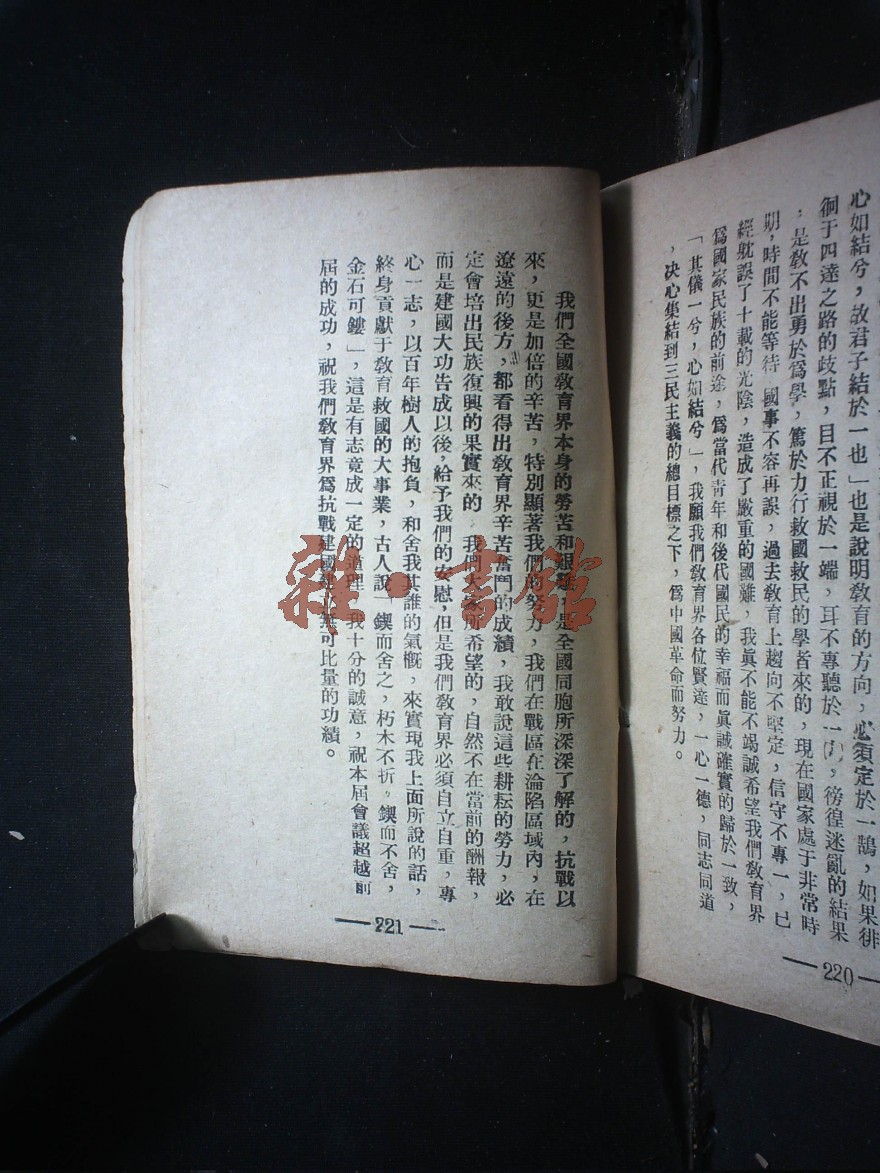 心如結兮，故君子結於一也」也是說明教育的方向，必須定於一鵠，如果徘
徊于四達之路的歧點，目不正視於一端，耳不專聽於一，徬徨迷亂的結果
，是敎不出勇於爲學，篤於力行救國救民的學者來的，現在國家處于非常時
期，時間不能等待 國事不容再誤，過去敎育上趨向不堅定，信守不專一，已
經躭誤了十載的光陰，造成了嚴重的國難，我眞不能不竭誠希望我們敎育界
爲國家民族的前途，爲當代靑年和後代國民的幸福而眞誠確實的歸於一致，
「其儀一兮，心如結兮」，我願我們敎育界各位賢達，一心一德，同志同道
，决心集結到三民主義的總目標之下，爲中國革命而努力。
—220—
我們全國敎育界本身的勞苦和艱，是全國同胞所深深了解的，抗戰以
來，更是加倍的辛苦，特別顯著我們的努力，我們在戰區在淪陷區域內，在
遼遠的後方，都看得出敎育界辛苦奮鬥的成績，我敢說這些耕耘的勞力，必
定會培出民族復興的果實來的 我們大家所希望的，自然不在當前的酬報，
而是建國大功告成以後，給予我們的安慰，但是我們敎育界必須自立自重，專
心一志，以百年樹人的抱負，和舍我其誰的氣慨，來實現我上面所說的話，
終身貢獻于敎育救國的大事業，古人說「鍥而舍之，朽木不折，鍥而不舍，
金石可鏤」，這是有志竟成一定的道理 我十分的誠意，祝本屆會議超越前
屆的成功，祝我們敎育界爲抗戰建國建無可比量的功績。
—221—
雜·書館